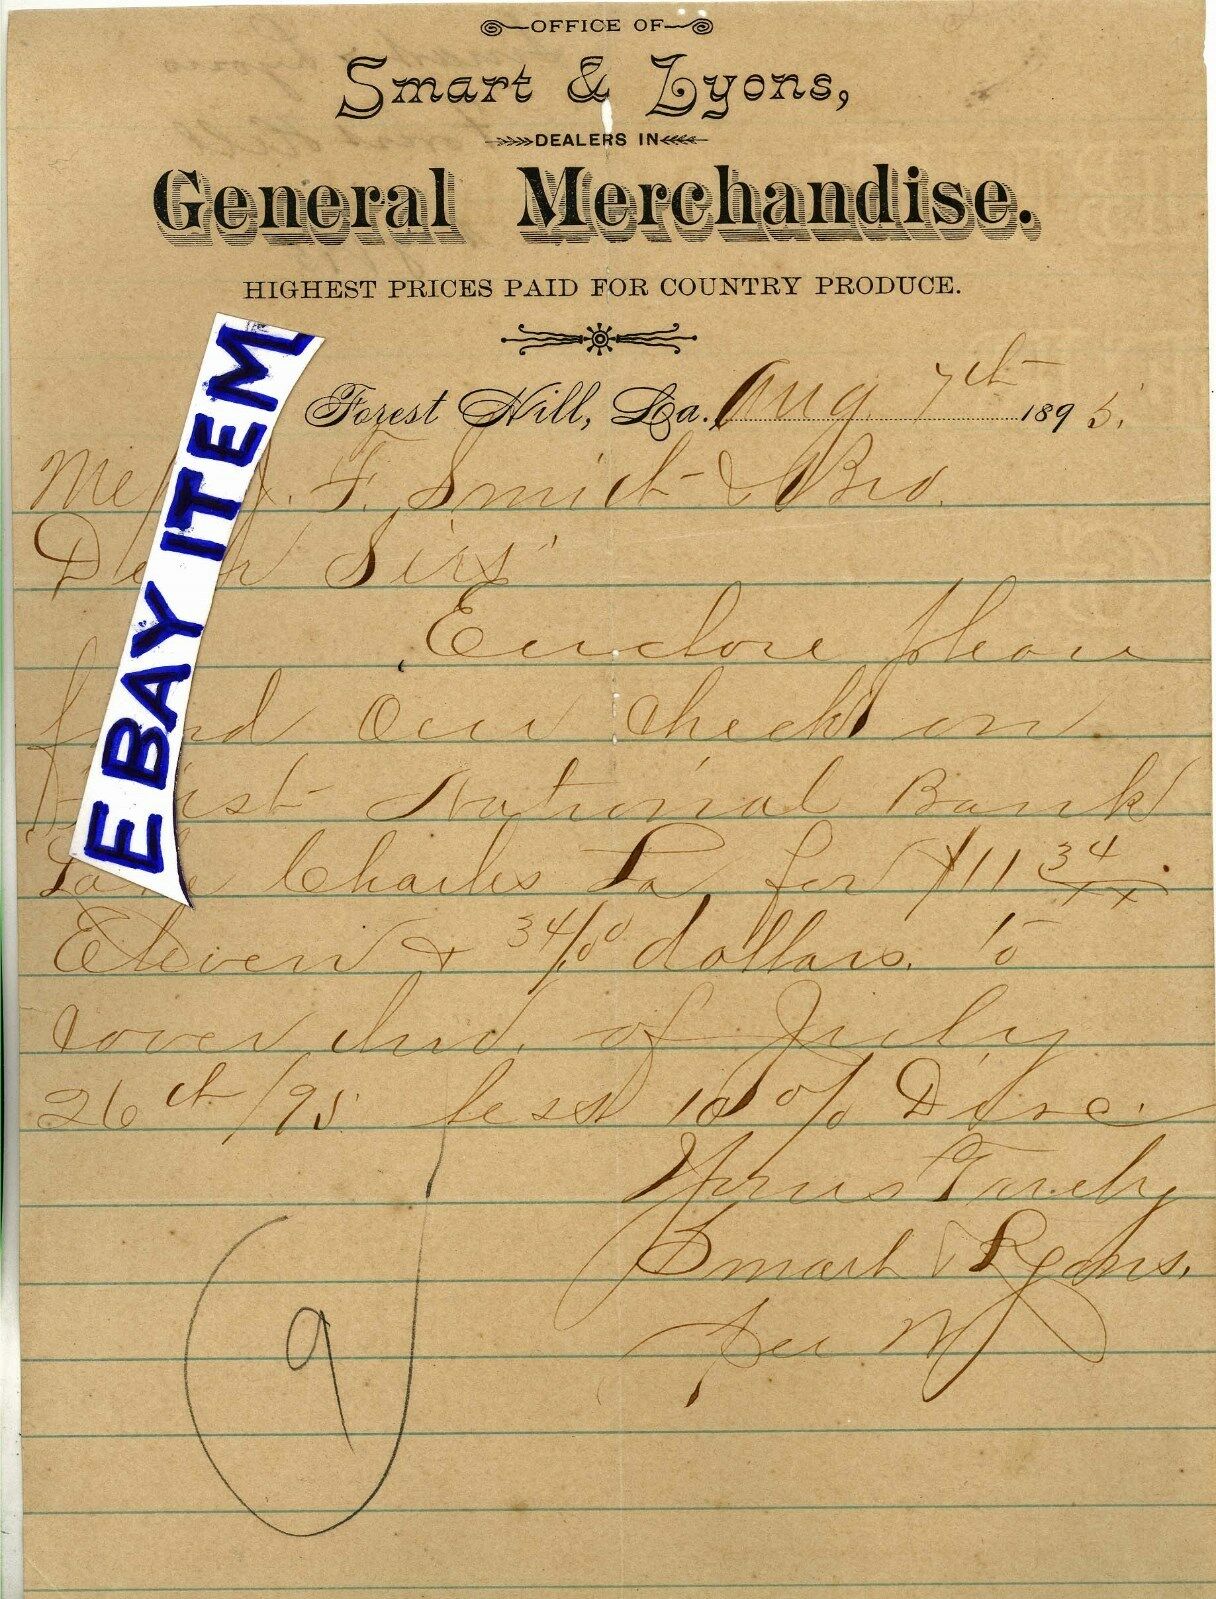 OFFICE OF
Smart & Lyons,
DEALERS IN
General Merchandise.
HIGHEST PRICES PAID FOR COUNTRY PRODUCE.
Forest Hill, La., Aug. 7th 1895.
F. Smith & Bro.
Dear Sirs
Enclose please
find our check on
First National Bank
Lake Charles La for $11 34/xx
Eleven & 34/00 dollars. to
cover of July
26th /95 less 10 % Disc.
Yours Truly
Smart & Lyons.
per M
9
E BAY ITEM